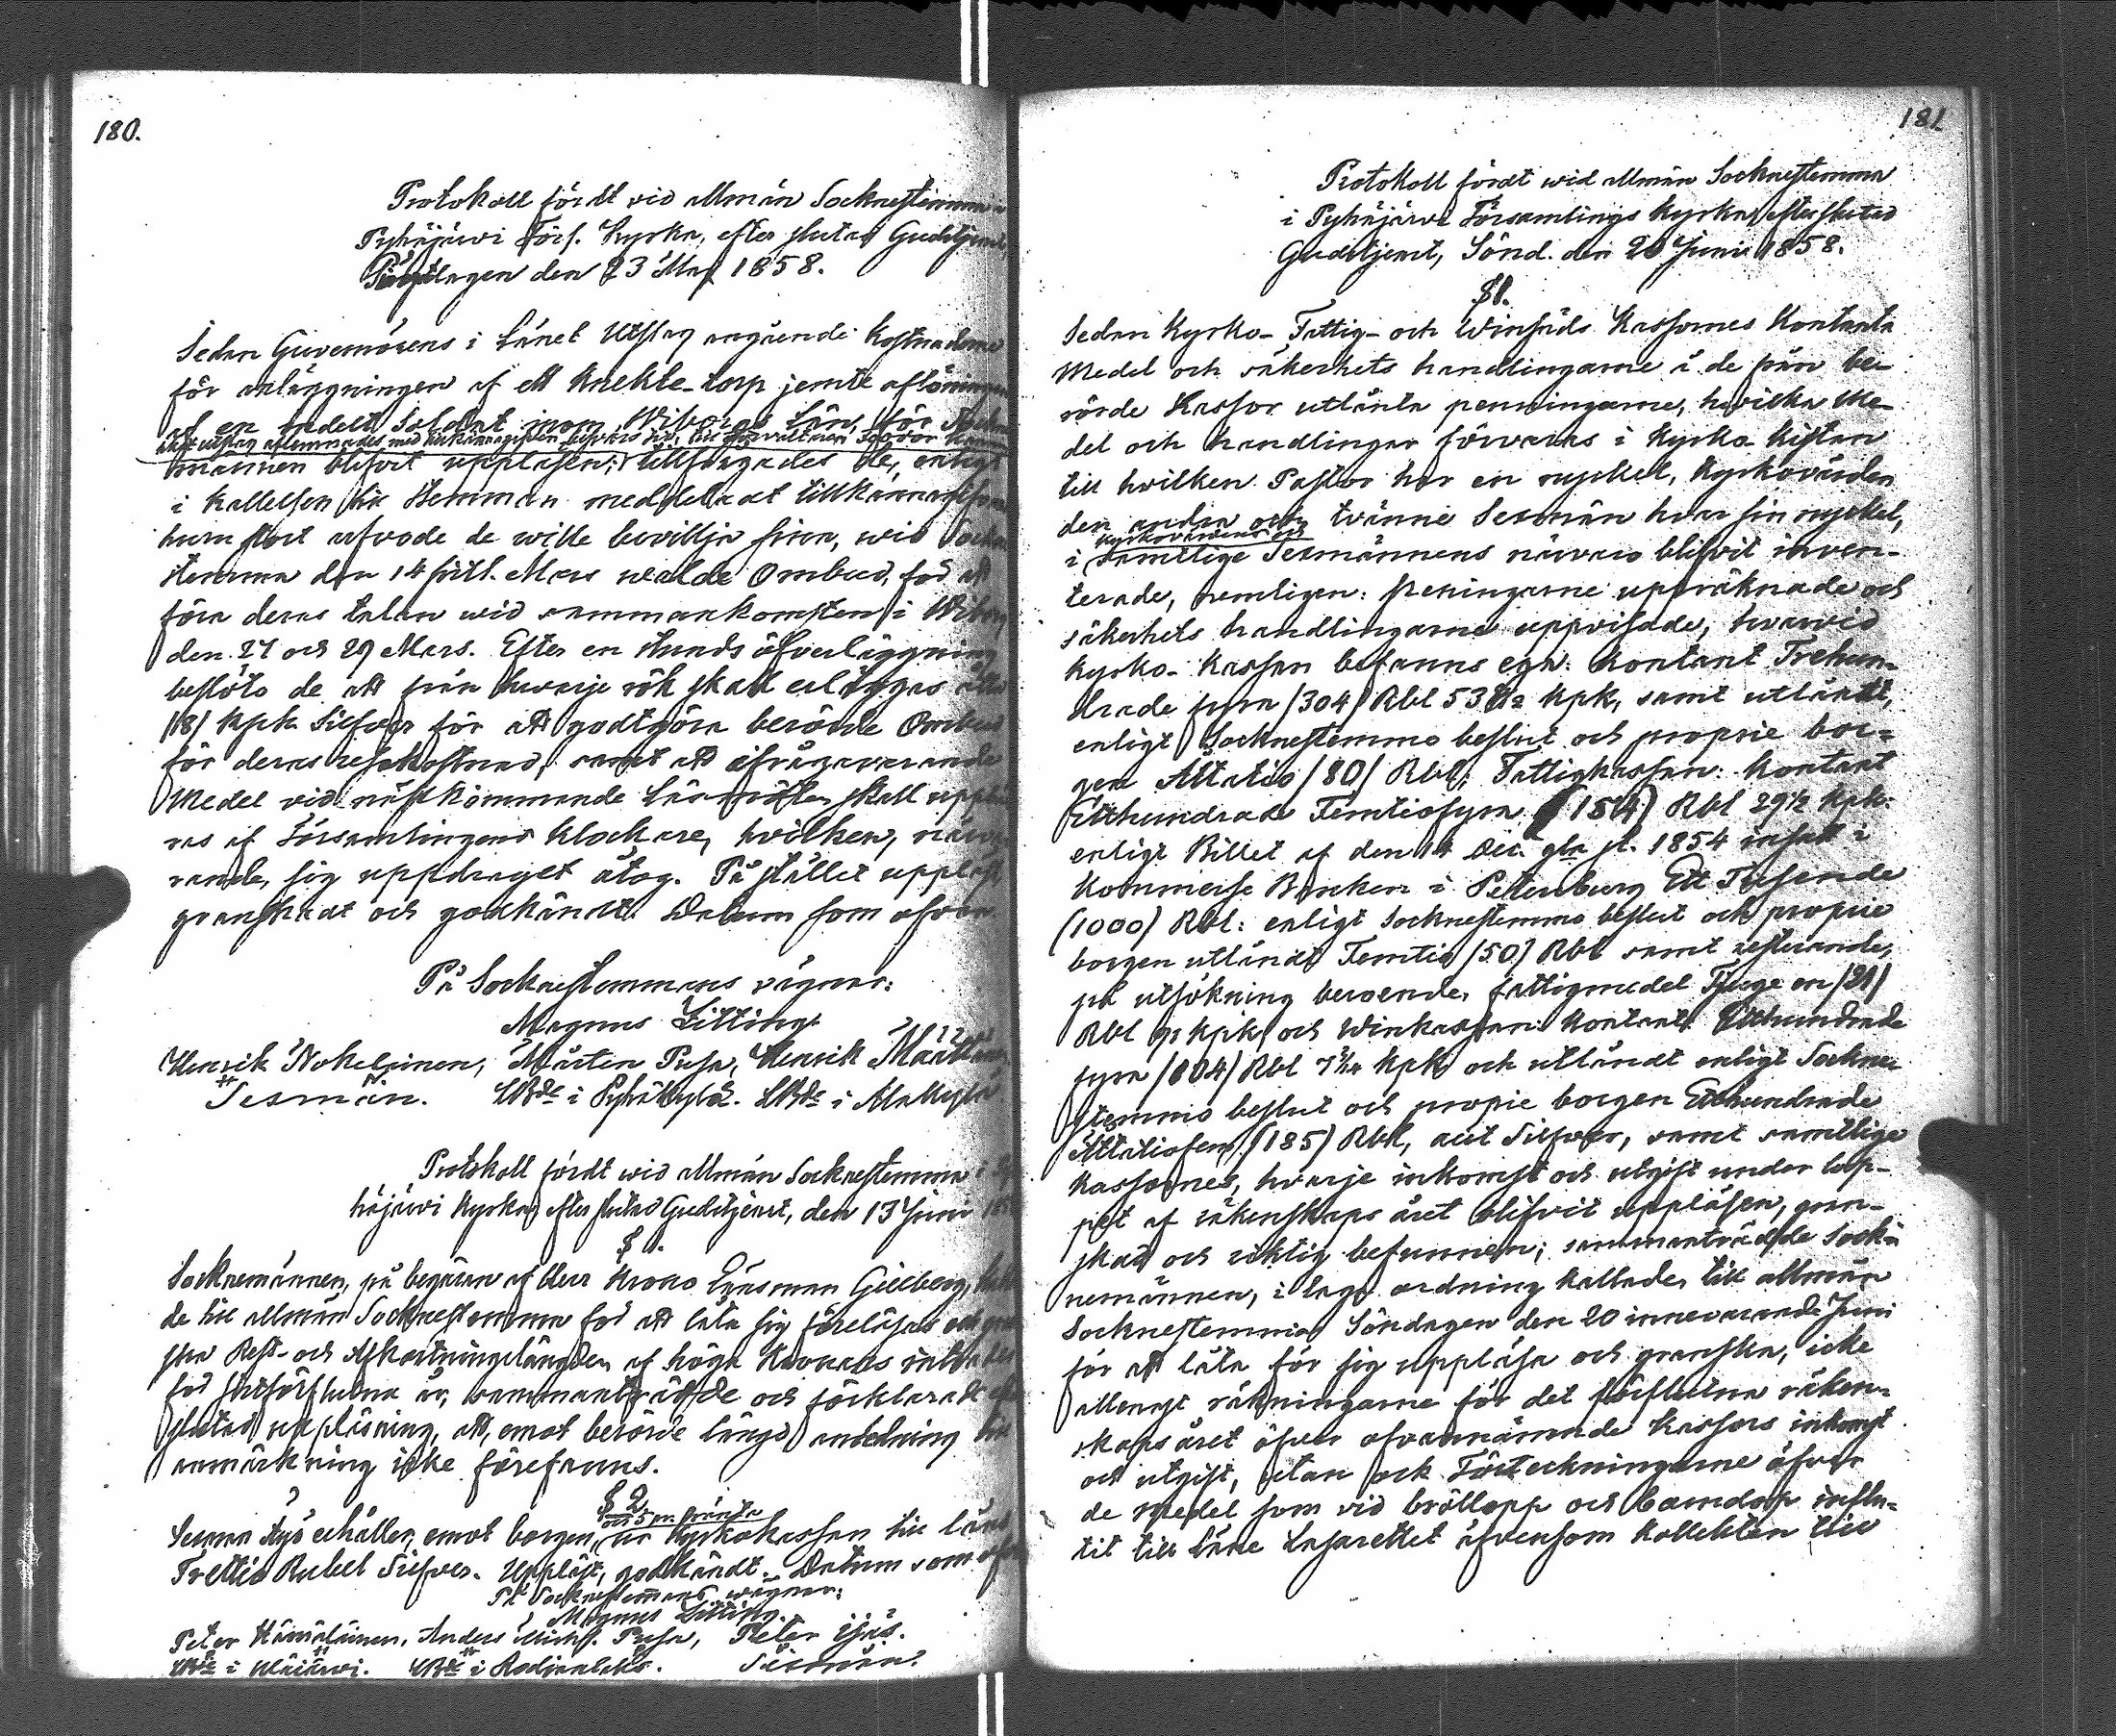 180.
Protokoll fördt vid allmän Socknestemma i
Pyhäjärvi Förs. Kyrka, efter slutad Gudstjenst,
Pingstdagen den 23 Maj 1858.
Sedan Guvernörens i Länet Utslag angående kostnaderne
för anläggningen af ett Knekte-torp jemte aflöningen
af en indelt Soldat inom Wiborgs Län, för Sockne
männen blifvit uppläsen; tillfrågades de, enligt
i kallelsen till Stemman meddeladt tillkännagifvande
huru stort arfvode de wille bevillja sina, wid Sockne
stemma den 14 sistl. Mars walde Ombud, för att
föra deras talan wid sammankomsten i Wiborg
den 27 och 29 Mars. Efter en stunds öfverläggning
beslöto de att från hvarje rök skall erläggas åtta
/8/ kpk Silfver för att godtgöra berörde Ombud
för deras resekostnad, samt att ifrågavarande
Medel vid nästkommande skall uppbä
ras af Församlingens Klockare, hvilken, närva
rande, sig uppdraget åtog. På stället uppläst
granskadt och godkändt. Datum som ofvan
På Socknestemmans vägnar:
Magnus Litting
Henrik Nokelainen, Mårten Pusa, Henrik
Sexmän. LBde i Pyhäkylä. LBde i Alakylä
Protokoll fördt wid allmän Socknestemma i
häjärvi Kyrka, efter slutad Gudstjenst, den 13 Juni 185
§ 1.
Socknemännen, på begäran af Herr Krono Länsman Gilberg,
de till allmän Socknestemma för att låta sig föreläsas och gran
ska Rest- och Afkortningslängden af höga Kronans
för sistförflutna år, sammanträdde och förklarade efter
slutad uppläsning, att, emot berörde längd, anledning till
anmärkning icke förefanns.
§ 2
och 5 pr. ränta
Sexman Ijäs erhåller, emot borgen, ur Kyrkokassan till låns
Trettio Rubel Silfver. Uppläst, godkändt. Datum som ofvan
På Socknestemmans wägnar:
Magnus Litting.
Peter Hämäläinen, Anders Michs. Pusa, Peter Ijäs.
LBde i LBde i Sexmän.
181.
Protokoll fördt wid allmän Socknestemma
i Pyhäjärvi Församlings Kyrka, efter slutad
Gudstjenst, Sönd. den 20 Juni 1858.
§ 1.
Sedan Kyrko- Fattig- och Winfäds Kassornes Kontanta
Medel och säkerhets handlingarne å de från be-
rörde Kassor utlånta penningarne, hvilka Me-
del och handlingar förvaras i Kyrko Kistan
till hvilken Pastor har en nyckel, Kyrkovärden
den andra och tvänne Sexmän hvar sin nyckel,
kyrkovärdens och
i samtlige Sexmännens närvaro blifvit inven-
terade, nemligen: peningarne uppräknade och
säkerhets handlingarne uppvisade, hvarvid
Kyrko-Kassan befanns ega: Kontant Trehun-
drade fyra /304/ Rbl 53 1/2 Kpk, samt utlåndt,
enligt Socknestemmo beslut och proprie bor-
gen Åttatio /80/ Rbl; Fattigkassan: Kontant
Etthundrade Femtiofyra (154) Rbl 29 1/2 Kpk:
enligt Billet af den 14 Dec. gla st. 1854 insatt i
Kommerse Banken i Petersburg Ett Tusende
(1000) Rbl: enligt Socknestemmo beslut och proprie
borgen utlåndt Femtio /50/ Rbl samt resterande,
på utsökning beroende, fattigmedel Tjuge en /21/
Rbl Kpk och Winkassan: Kontant Etthundrade
fyra /104/ Rbl 7 3/4 Kpk och utlåndt enligt Sockne
stemmo beslut och proprie borgen Etthundrade
Åttatiofem (185) Rbl, allt Silfver, samt samtlige
Kassornes, hvarje inkomst och utgift under lop-
pet af räkenskaps året blifvit uppläsen, gran-
skad och riktig befunnen; sammanträdde Sock-
nemännen, i laga ordning kallade, till allmän
Socknestemma Söndagen den 20 innevarande Juni
för att låta för sig uppläsa och granska, icke
allenast räkningarne för det förflutna räken-
skaps året öfver ofvannämnde Kassors inkomst
och utgift, utan ock Förteckningarne öfver
de Medel som vid bröllopp och barndop influ-
tit till Läne Lasarettet äfvensom Kollekten till